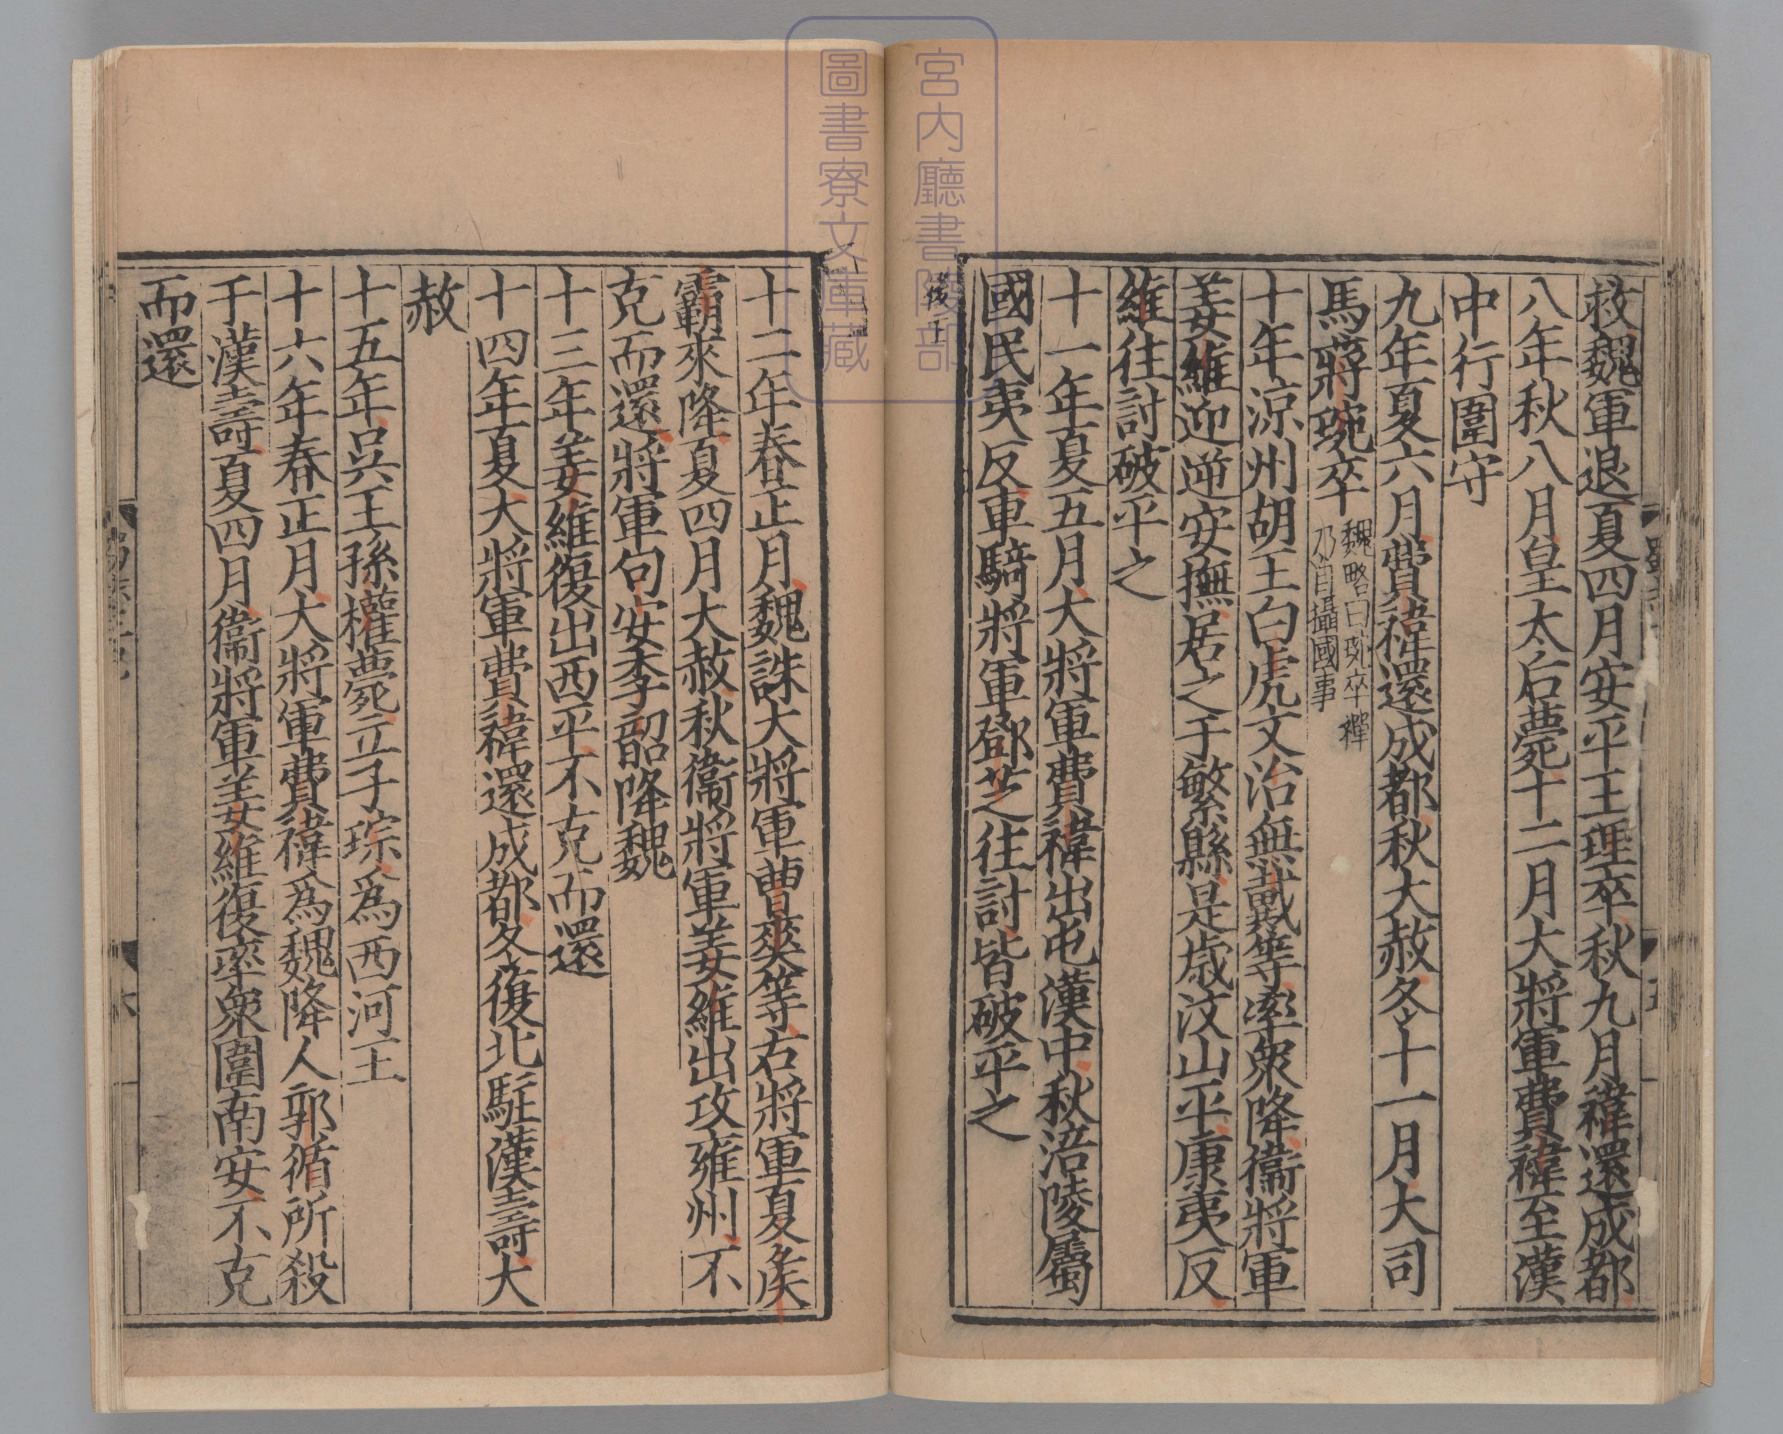 救魏軍退夏四月安平王理卒秋九月禕還成都
八年秋八月皇太后薨十二月大將軍費禕至漢
中行圍守
九年夏六月費禕還成都秋大赦冬十一月大司
馬蔣琬卒
魏略曰琬卒禪
乃自攝國事
十年涼州胡王白虎文治無戴等率衆降衞將軍
姜維迎逆安撫居之于繁縣是歳汶山平康夷反
維往討破平之
十一年夏五月大將軍費禕出屯漢中秋涪陵屬
國民夷反車騎將軍鄧芝往討皆破平之
十二年春正月魏誅大將軍曹爽等右將軍夏矦
霸來降夏四月大赦秋衞將軍姜維出攻雍州不
克而還將軍句安李韶降魏
十三年姜維復出西平不克而還
十四年夏大將軍費禕還成都冬復北駐漢壽大
赦
十五年吳王孫權薨立子琮爲西河王
十六年春正月大將軍費禕爲魏降人郭循所殺
于漢壽夏四月衞將軍姜維復率衆圍南安不克
而還
宮内廳書陵部
圖書寮文庫藏